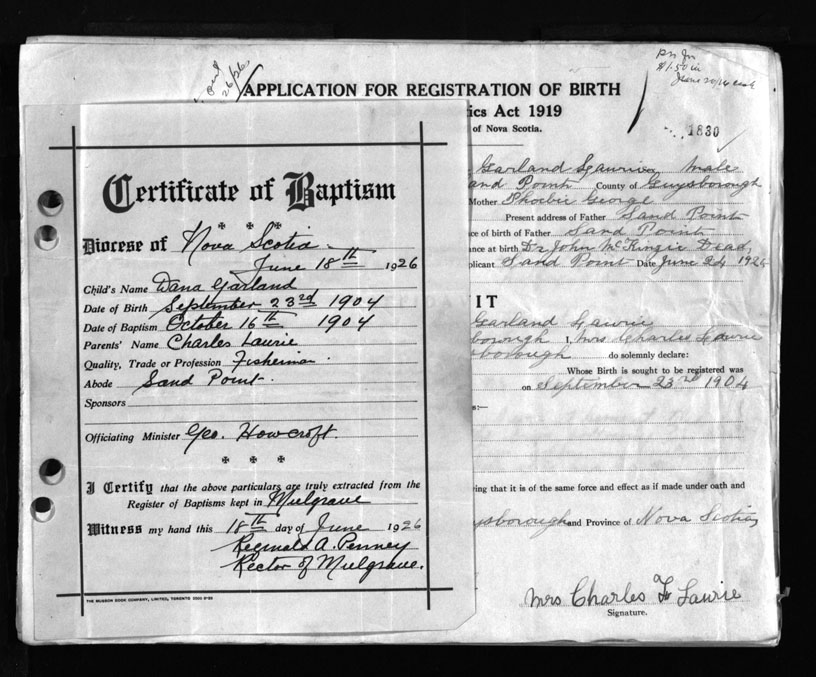 P in Jn
$1.50 in
APPLICATION FOR REGISTRATION OF BIRTH
ics Act 1919
of Nova Scotia.
1830
Garland Laurie male
and Point County of Guysborough
Mother Phoebie George
Present address of Father Sand Point
ce of birth of Father Sand Point
ance at birth Dr John McKingie Dead,
plicant Sand Point Date June 24 1926
IT
Garland Lawrie
borough I, Mrs Charles Lawrie
sborough do solemnly declare:
Whose Birth is sought to be registered was
on September 23rd 1904
s:—
ing that it is of the same force and effect as if made under oath and
ysborough and Province of Nova Scotia
Mrs Charles F Lawrie
Signature.
Certificate of Baptism
Diocese of Nova Scotia.
June 18th 1926
Child's Name Dana Garland
Date of Birth September 23rd 1904
Date of Baptism October 16th 1904
Parents' Name Charles Laurie
Quality, Trade or Profession Fisherman.
Abode Sand Point.
Sponsors
Officiating Minister Geo. Howcroft.
I Certify that the above particulars are truly extracted from the
Register of Baptisms kept in Mulgrave
Witness my hand this 18th day of June 1926
Reginald A. Penney
Rector of Mulgrave.
THE MUSSON BOOK COMPANY, LIMITED, TORONTO